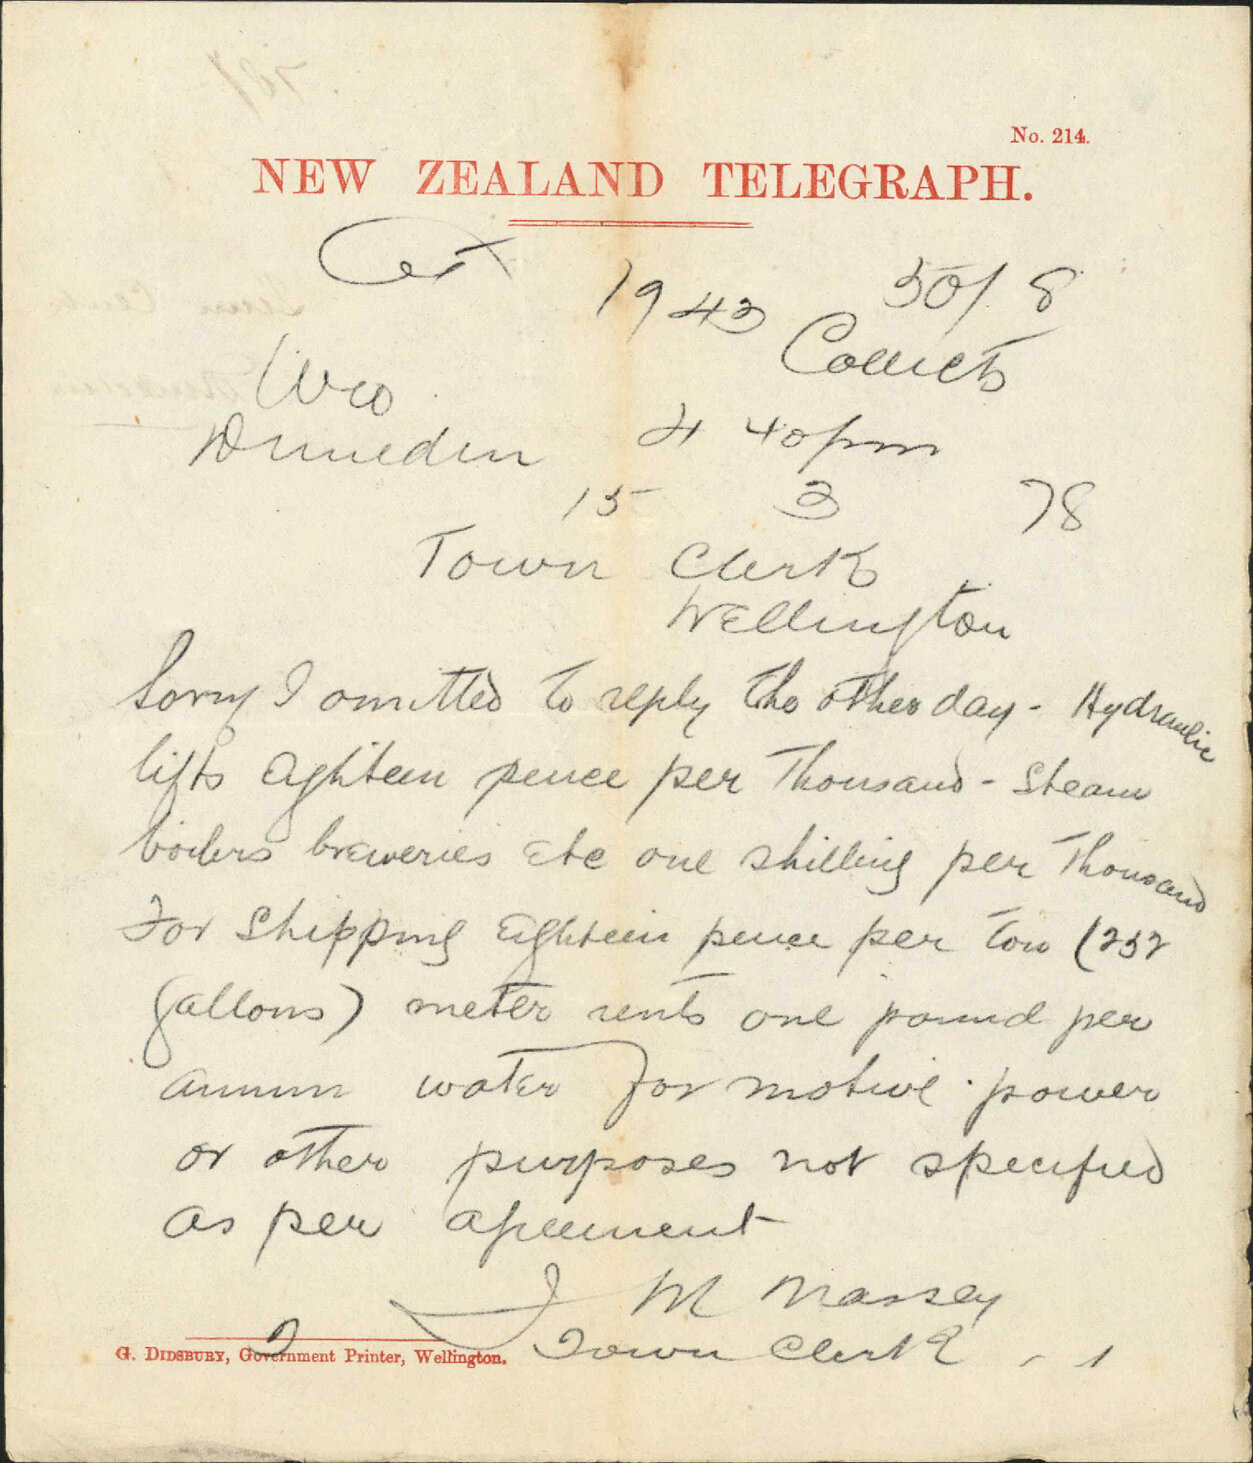 No. 214.
NEW ZEALAND TELEGRAPH.
1943 50/8
Collects
Dunedin 4 40pm
15 3 78
Town Clerk
Wellington
Sorry I omitted to reply the other day - Hydraulic
lifts eighteen pence per thousand - Steam
boilers breweries etc one shilling per thousand
For Shipping eighteen pence per ton (252
gallons) meter rents one pound per
annum water for motive power
or other purposes not specified
as per agreement
J M Massey
Town Clerk
G. DIDSBURY, Government Printer, Wellington.